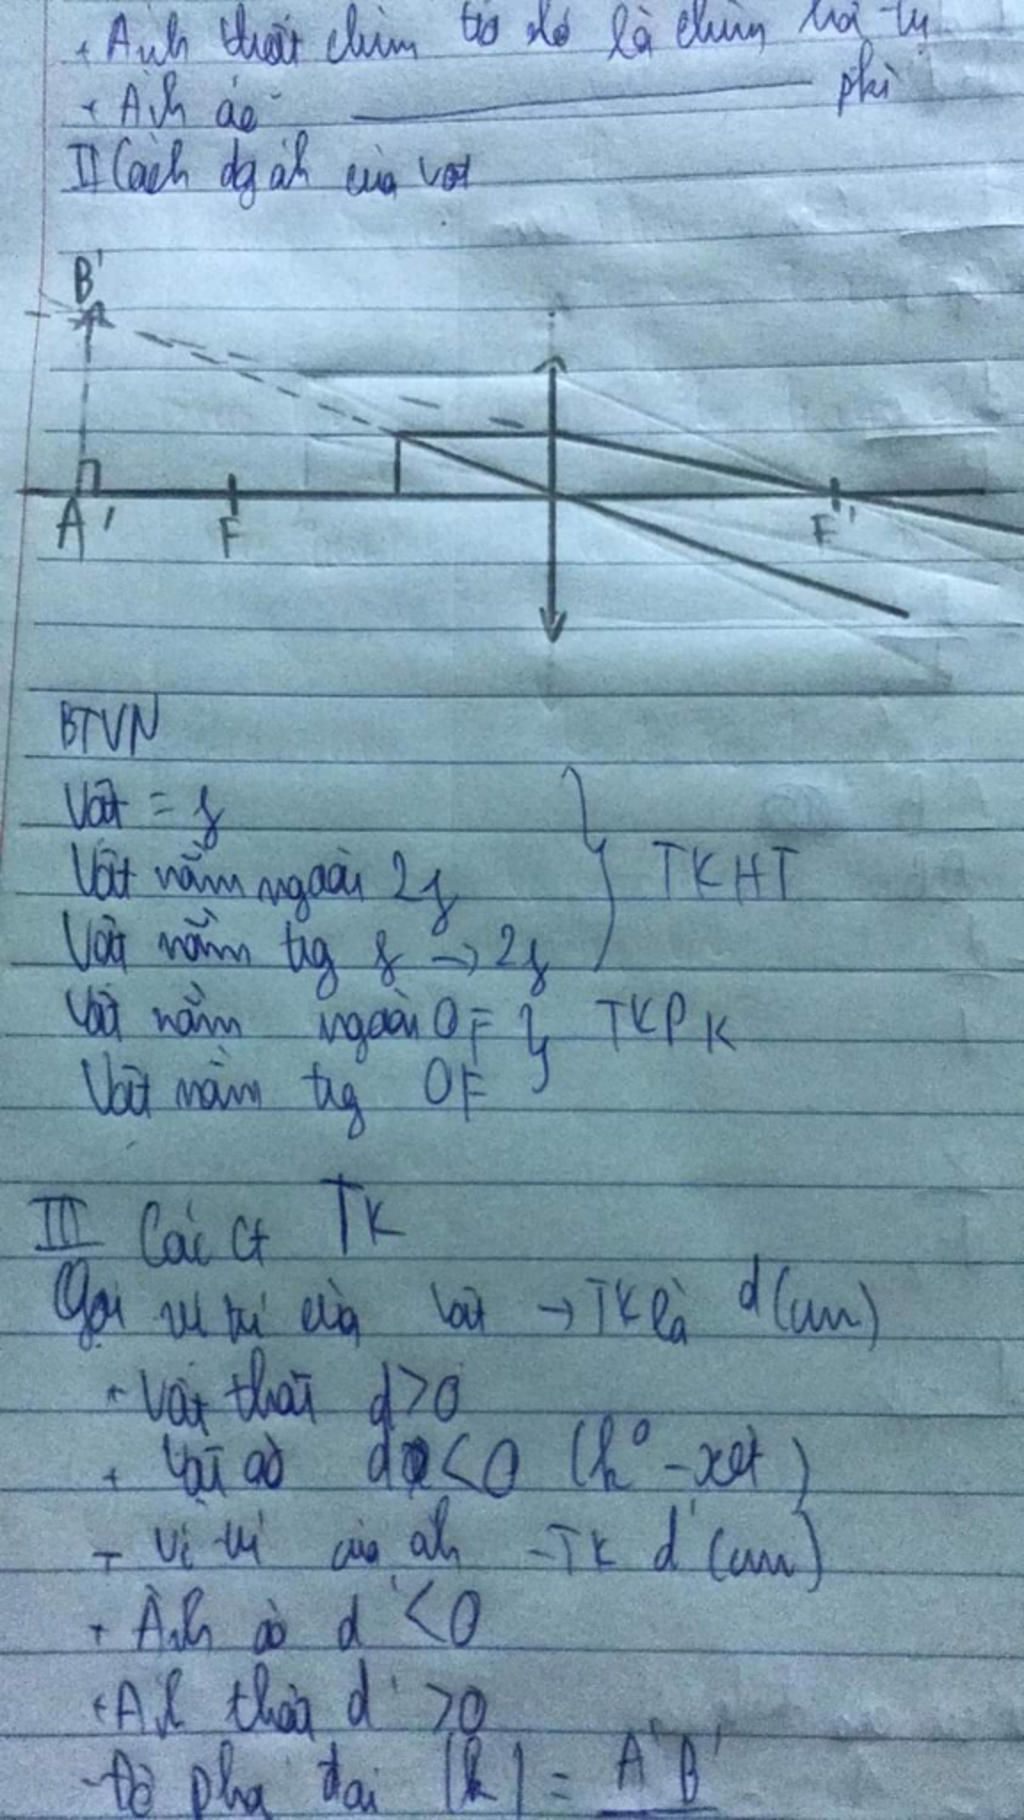 + Ảnh thật chùm tia ló là chùm hội tụ
+ Ảnh ảo ——— phì
II Cách dg ảh của vật
B'
A' F F'
BTVN
Vật = f
Vật nằm ngoài 2f
Vật nằm trg f → 2f
} TKHT
Vật nằm ngoài OF
Vật nằm trg OF
} TKPK
III Các ct TK
Gọi vị trí của vật → TK là d (cm)
+ Vật thật d > 0
+ Vật ảo d < 0 (k° - xét)
- Vị trí của ảh - TK d' (cm)
+ Ảnh ảo d' < 0
+ Ảh thật d' > 0
- Độ phg đại |k| = A'B'